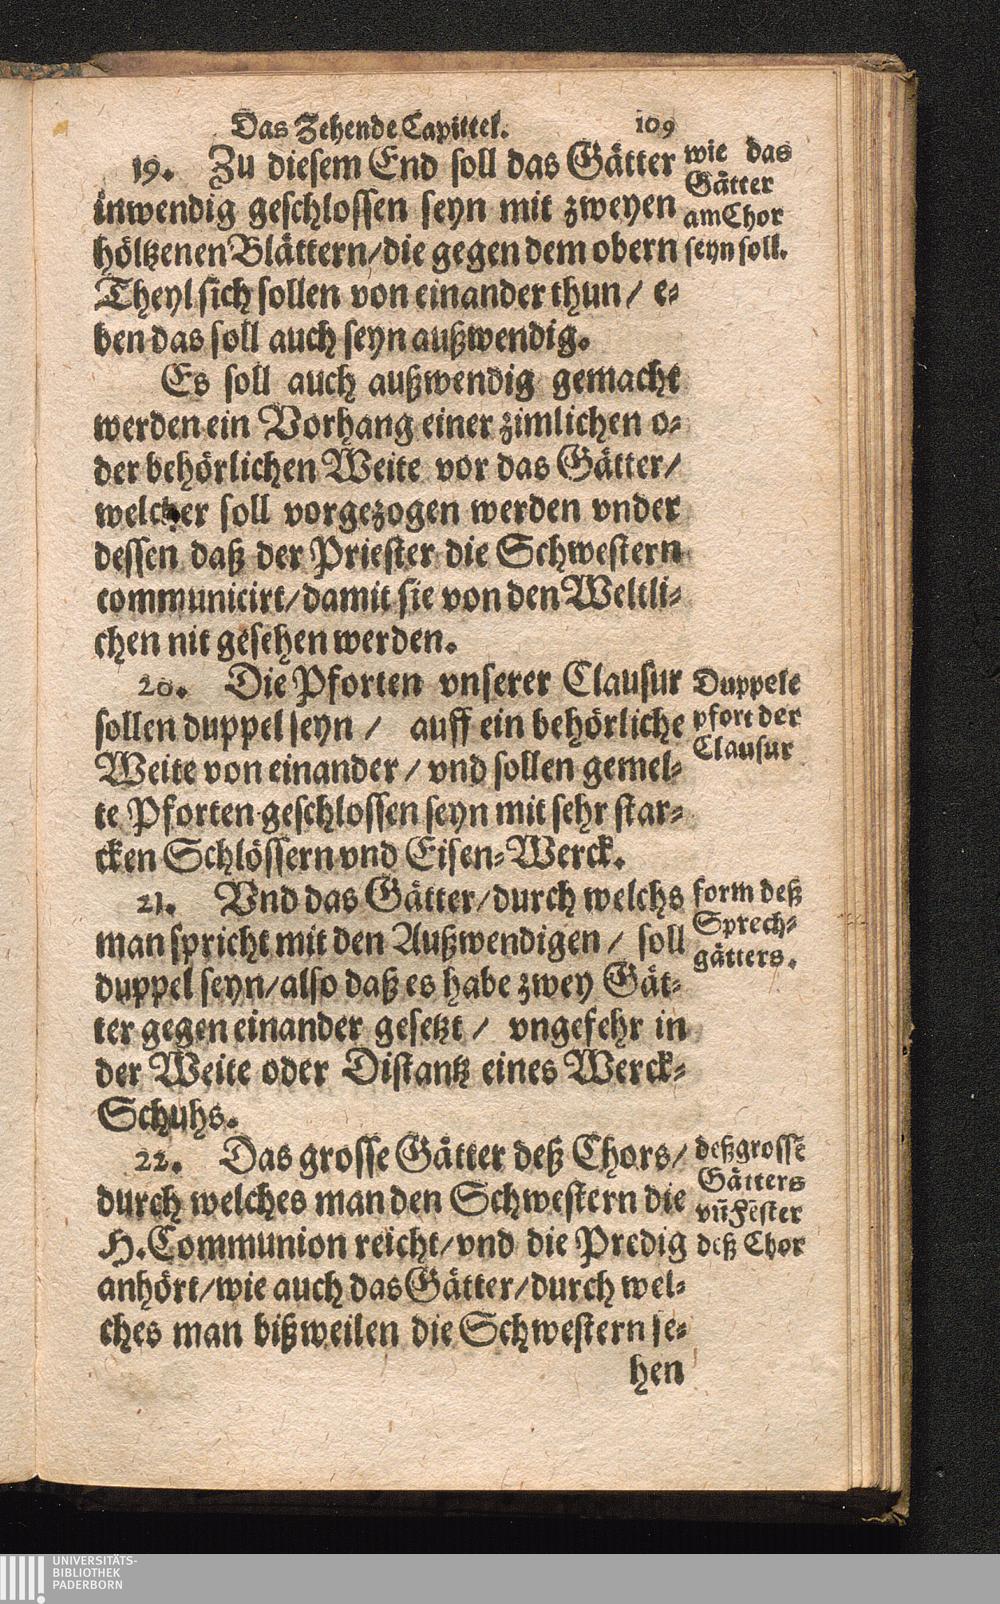 Das Zehende Capittel. 109
19. Zu diesem End soll das Gätter
inwendig geschlossen seyn mit zweyen
höltzenen Blättern/die gegen dem obern
Theyl sich sollen von einander thun/ e-
ben das soll auch seyn außwendig.
wie das
Gätter
am Chor
seyn soll.
Es soll auch außwendig gemacht
werden ein Vorhang einer zimlichen o-
der behörlichen Weite vor das Gätter/
welcher soll vorgezogen werden vnder
dessen daß der Priester die Schwestern
communicirt/damit sie von den Weltli-
chen nit gesehen werden.
20. Die Pforten vnserer Clausur
sollen duppel seyn / auff ein behörliche
Weite von einander / vnd sollen gemel-
te Pforten geschlossen seyn mit sehr star-
cken Schlössern vnd Eisen-Werck.
Duppele
pfort der
Clausur
21. Vnd das Gätter/durch welchs
man spricht mit den Außwendigen / soll
duppel seyn/also daß es habe zwey Gät-
ter gegen einander gesetzt / vngefehr in
der Weite oder Distantz eines Werck-
Schuhs.
form deß
Sprech-
gätters.
22. Das grosse Gätter deß Chors/
durch welches man den Schwestern die
H. Communion reicht/vnd die Predig
anhört/wie auch das Gätter/durch wel-
ches man bißweilen die Schwestern se-
hen
deß grossē
Gätters
vñ Fēster
deß Chor
UNIVERSITÄTS-
BIBLIOTHEK
PADERBORN